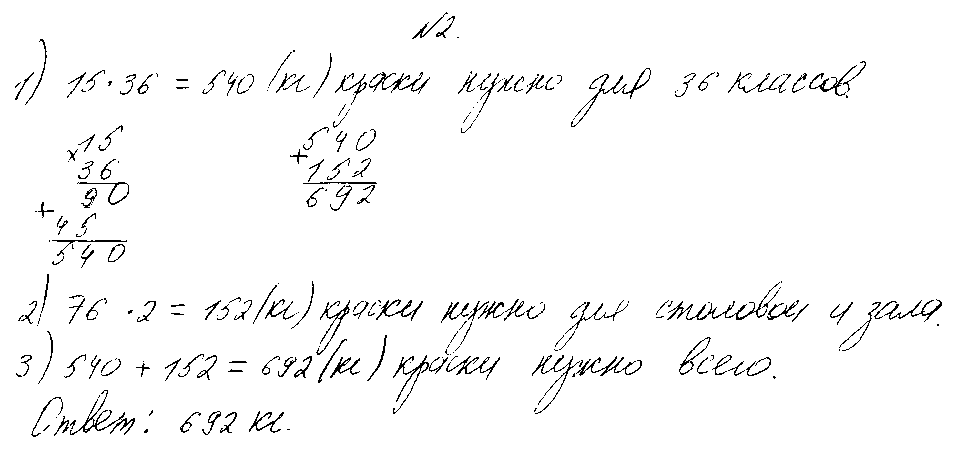 №2.
1) 15·36 = 540 (кг) краски нужно для 36 классов.
×15
36
90
+
45
540
540
+
152
692
2) 76 · 2 = 152 (кг) краски нужно для столовой и зала.
3) 540 + 152 = 692 (кг) краски нужно всего.
Ответ: 692 кг.